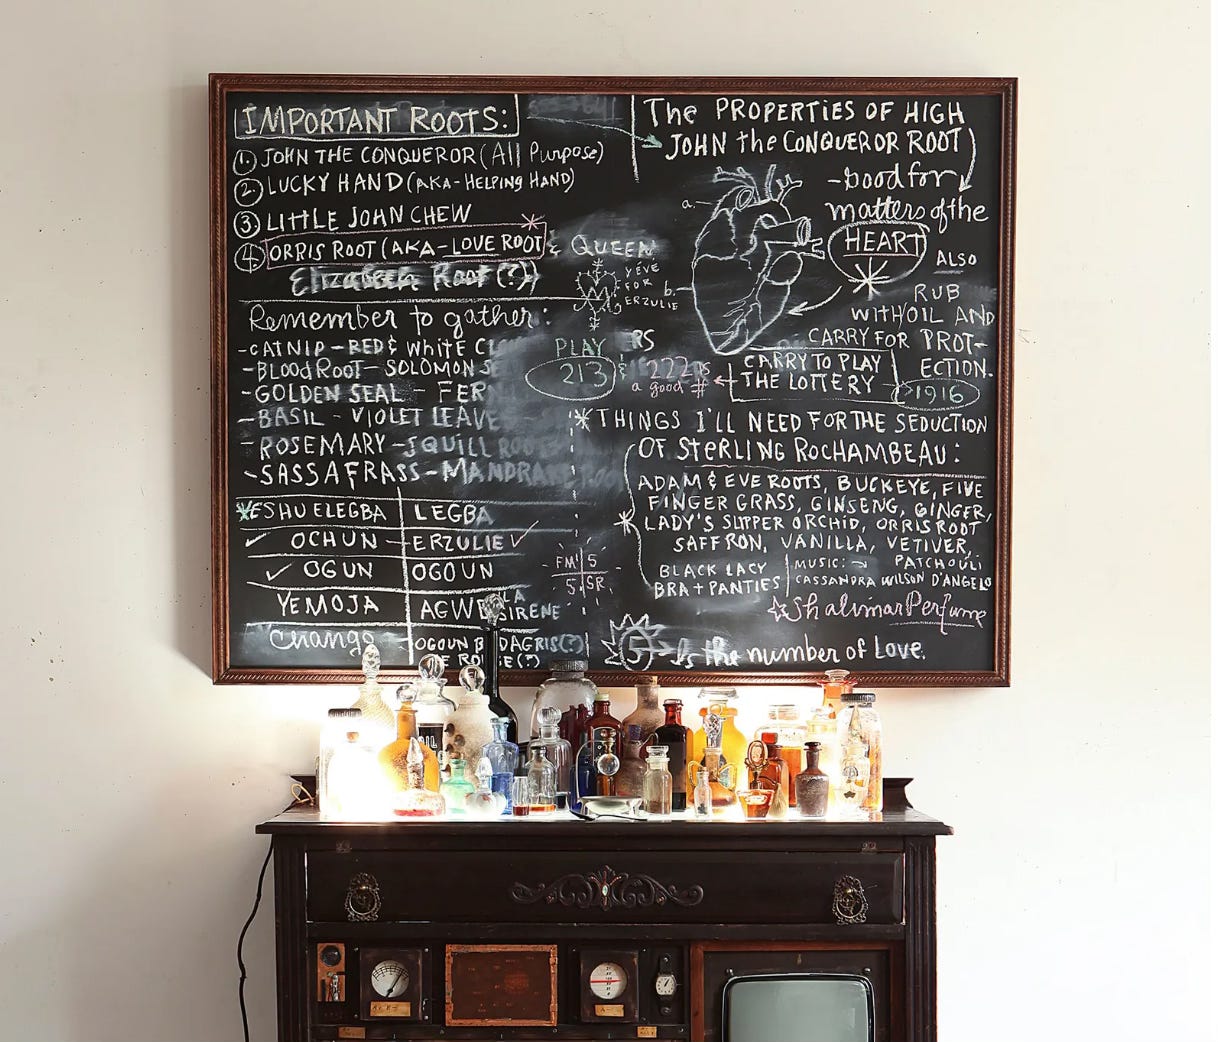 IMPORTANT ROOTS:
1. JOHN THE CONQUEROR (All Purpose)
2 LUCKY HAND (AKA-HELPING HAND)
3 LITTLE JOHN CHEW
4. ORRIS ROOT (AKA-LOVE ROOT & QUEEN
Elizabeth Root (?))
VÉVÉ
FOR
ERZULIE
Remember to gather:
-CATNIP-RED & WHITE
-BLOODROOT-SOLOMON
-GOLDEN SEAL - FER
-BASIL - VIOLET LEAVE
-ROSEMARY-JQUILL
-SASSAFRASS-MANDRAKE
PLAY
213 & 222
a good #
ESHU ELEGBA LEGBA
OCHUN ERZULIE
OGUN OGOUN
YEMOJA AGWE LA SIRENE
Chango OGOUN BADAGRIS(?)
FM 5
5 SR
The PROPERTIES OF HIGH
JOHN the CONQUEROR ROOT
-Good for
matters of the
HEART
a.
b.
ALSO
RUB
WITH OIL AND
CARRY FOR PROT-
ECTION.
CARRY TO PLAY
THE LOTTERY
1916
*THINGS I'LL NEED FOR THE SEDUCTION
OF STERLING ROCHAMBEAU:
ADAM & EVE ROOTS, BUCKEYE, FIVE
FINGER GRASS, GINSENG, GINGER,
LADY'S SLIPPER ORCHID, ORRIS ROOT
SAFFRON, VANILLA, VETIVER,
PATCHOULI
BLACK LACY
BRA + PANTIES
MUSIC:
CASSANDRA WILSON D'ANGELO
Shalimar Perfume
5 - Is the number of Love.